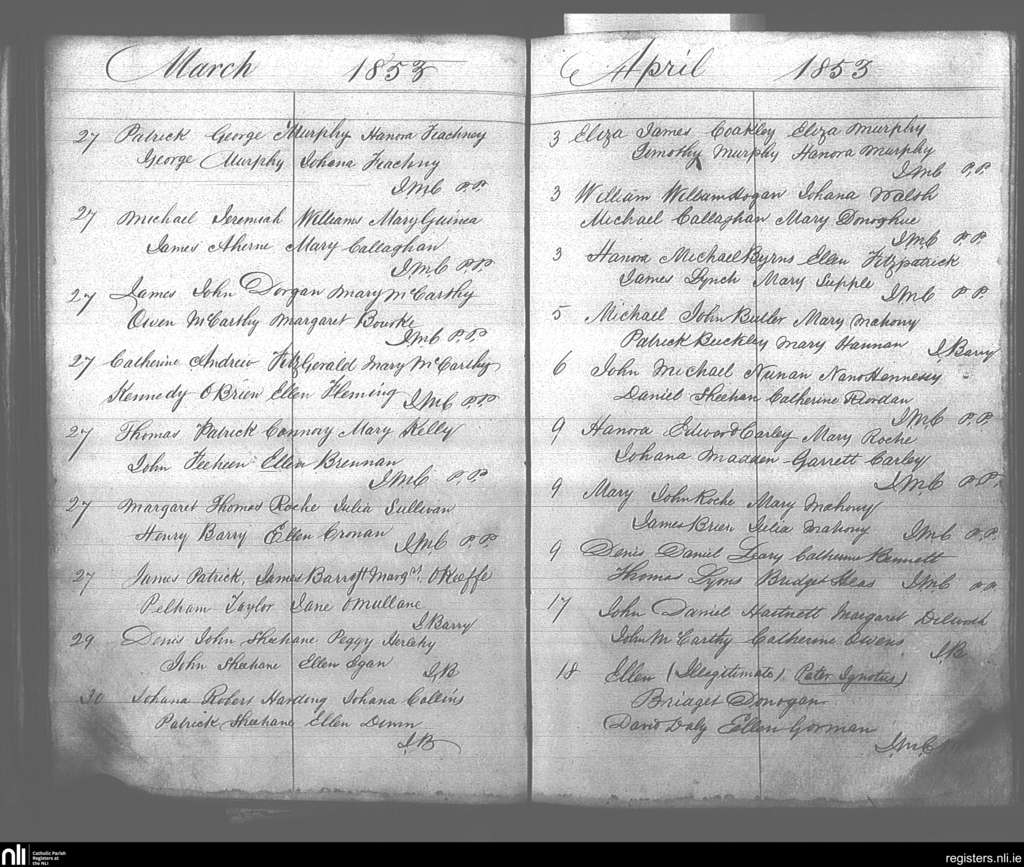 March 1853
27 Patrick George Murphy Hanora Feachney
George Murphy Johana Feachny
J. McC P.P.
27 Michael Jeremiah Williams Mary Guinea
James Aherne Mary Callaghan
J. McC P.P.
27 James John Dorgan Mary McCarthy
Owen McCarthy Margaret Bourke
J. McC P.P.
27 Catherine Andrew FitzGerald Mary McCarthy
Kennedy O'Brien Ellen Fleming J. McC P.P.
27 Thomas Patrick Connory Mary Kelly
John Feeheen Ellen Brennan
J. McC P.P.
27 Margaret Thomas Roche Julia Sullivan
Henry Barry Ellen Cronan J. McC P.P.
27 James Patrick, James Barrott Margt. O'Keeffe
Pelham Taylor Jane O'Mullane
J Barry
29 Denis John Sheehane Peggy Herlehy
John Sheehane Ellen Egan J, B
30 Johana Robert Harding Johana Collins
Patrick Sheehane Ellen
J, B
April 1853
3 Eliza James Coakley Eliza Murphy
Timothy Murphy Hanora Murphy
J. McC P.P.
3 William William Hogan Johana Walsh
Michael Callaghan Mary Donoghue
J. McC P.P.
3 Hanora Michael Byrns Ellen Fitzpatrick
James Lynch Mary Supple J. McC P.P.
5 Michael John Butler Mary Mahony
Patrick Buckley Mary Hannan J, Barry
6 John Michael Nunan Nano Hennessy
Daniel Sheehan Catherine Riordan
J. McC P.P.
9 Hanora Edward Carley Mary Roche
Johana Madden Garrett Carley
J. McC P.P.
9 Mary John Roche Mary Mahony
James Brien Julia Mahony J. McC P.P.
9 Denis Daniel Leary Catherine Bennett
Thomas Lyons Bridget Heas J. McC P.P.
17 John Daniel Hartnett Margaret Dilworth
John McCarthy Catherine Owens, J, B
18 Ellen (Illegitimate), Pater Ignotus)
Bridget Donogan
David Daly Ellen Gorman
J. McC
nli Catholic Parish
Registers at
the NLI
registers.nli.ie